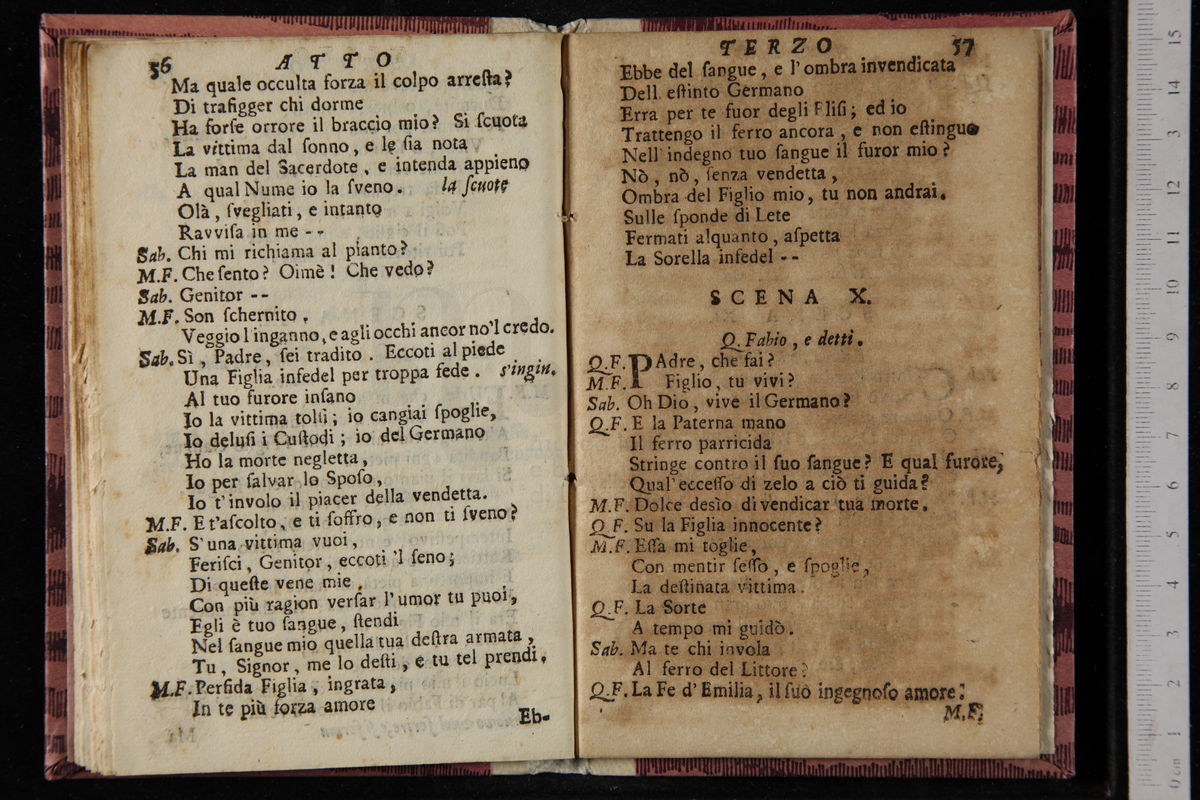 56 ATTO
Ma quale occulta forza il colpo arreſta?
Di trafigger chi dorme
Ha forſe orrore il braccio mio? Si ſcuota
La vittima dal ſonno, e le ſia nota
La man del Sacerdote, e intenda appieno
A qual Nume io la ſveno. la ſcuote
Olà, ſvegliati, e intanto
Ravviſa in me --
Sab. Chi mi richiama al pianto?
M.F. Che ſento? Oimè! Che vedo?
Sab. Genitor --
M.F. Son ſchernito.
Veggio l inganno, e agli occhi ancor no'l credo.
Sab. Sì, Padre, ſei tradito. Eccoti al piede
Una Figlia infedel per troppa fede. s'ingin.
Al tuo furore inſano
Io la vittima tolſi; io cangiai ſpoglie,
Io deluſi i Cuſtodi; io del Germano
Ho la morte negletta,
Io per ſalvar lo Spoſo,
Io t'involo il piacer della vendetta.
M.F. E t'aſcolto, e ti ſoffro, e non ti ſveno?
Sab. S'una vittima vuoi,
Feriſci, Genitor, eccoti 'l ſeno;
Di queſte vene mie
Con più ragion verſar l'umor tu puoi,
Egli è tuo ſangue, ſtendi
Nel ſangue mio quella tua deſtra armata,
Tu, Signor, me lo deſti, e tu tel prendi.
M.F. Perfida Figlia, ingrata,
In te più forza amore
Eb-
TERZO 57
Ebbe del ſangue, e l'ombra invendicata
Dell eſtinto Germano
Erra per te fuor degli Eliſi; ed io
Trattengo il ferro ancora, e non eſtinguo
Nell' indegno tuo ſangue il furor mio?
Nò, nò, ſenza vendetta,
Ombra del Figlio mio, tu non andrai.
Sulle ſponde di Lete
Fermati alquanto, aſpetta
La Sorella infedel --
SCENA X.
Q. Fabio, e detti.
Q.F. PAdre, che fai?
M.F. Figlio, tu vivi?
Sab. Oh Dio, vive il Germano?
Q.F. E la Paterna mano
Il ferro parricida
Stringe contro il ſuo ſangue? E qual furore,
Qual' ecceſſo di zelo a ciò ti guida?
M.F. Dolce desìo di vendicar tua morte.
Q.F. Su la Figlia innocente?
M.F. Eſſa mi toglie,
Con mentir ſeſſo, e ſpoglie,
La deſtinata vittima.
Q.F. La Sorte
A tempo mi guidò.
Sab. Ma te chi invola
Al ferro del Littore?
Q.F. La Fe d' Emilia, il ſuo ingegnoſo amore.
M.F.